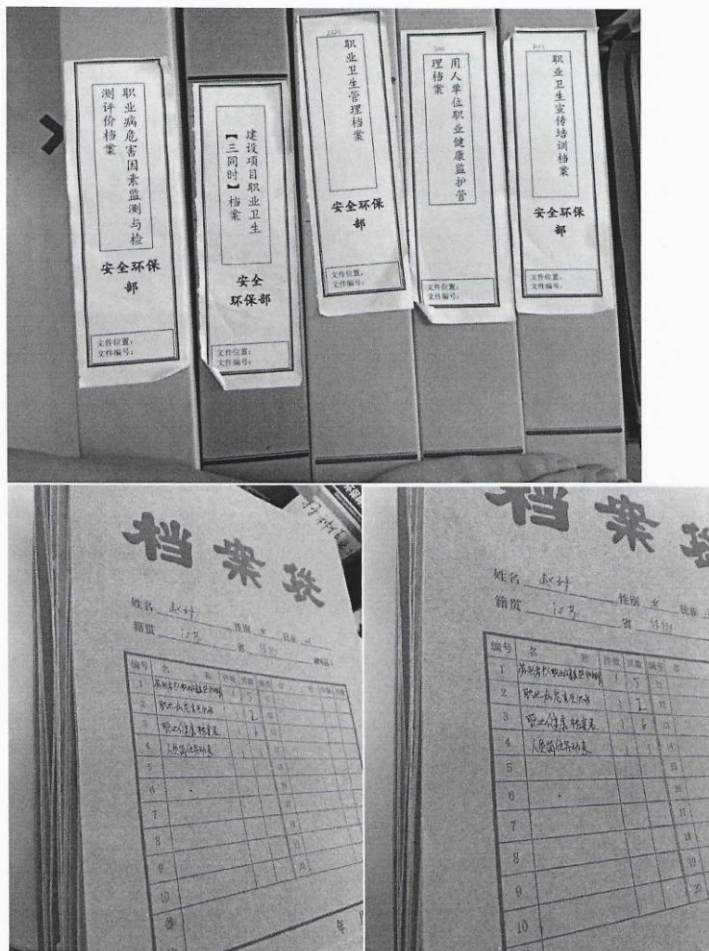 职业病危害因素监测与检
测评价档案
安全环保
部
文件位置:
文件编号:
建设项目职业卫生
【三同时】档案
安全
环保部
文件位置:
文件编号:
职业卫生管理档案
安全环保
部
文件位置:
文件编号:
用人单位职业健康监护管
理档案
文件位置:
文件编号:
职业卫生宣传培训档案
安全环保
部
文件位置:
文件编号:
档案袋
姓名 性别 女 民族
籍贯 江苏 省
编号 名 称 件数 页数 编号 名 称 件数 页数
1 1 5
2 1 2
3 职业健康检查表 1 6
4 1 1
5
6
7
8
9
10
年 月
档案袋
姓名 性别 女 民族
籍贯 江苏 省
编号 名 称 件数 页数 编号 名
1 1 5
2 1 2
3 职业健康检查表 1 6
4 1 1
5
6
7
8
9
10